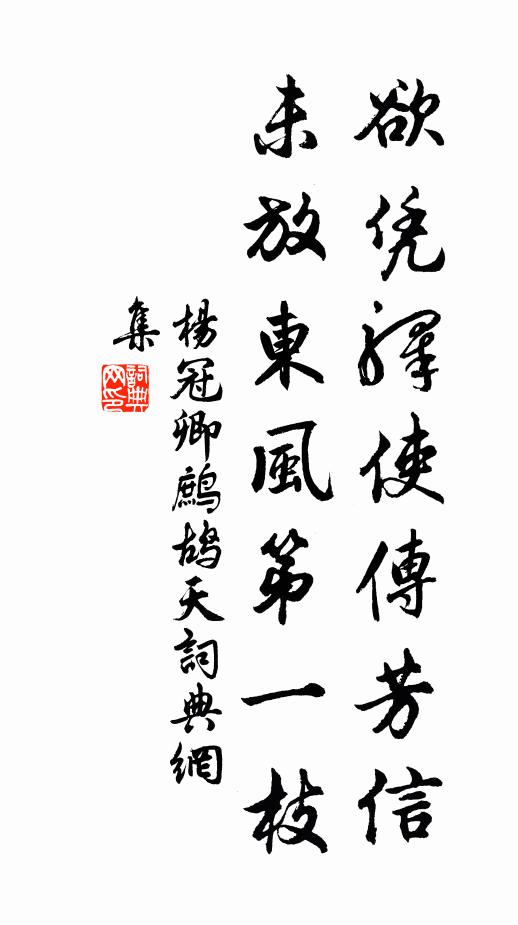 欲凭驛使傳芳信
未放東風第一枝
楊冠卿鷓鴣天詞典網
集
詞典網印